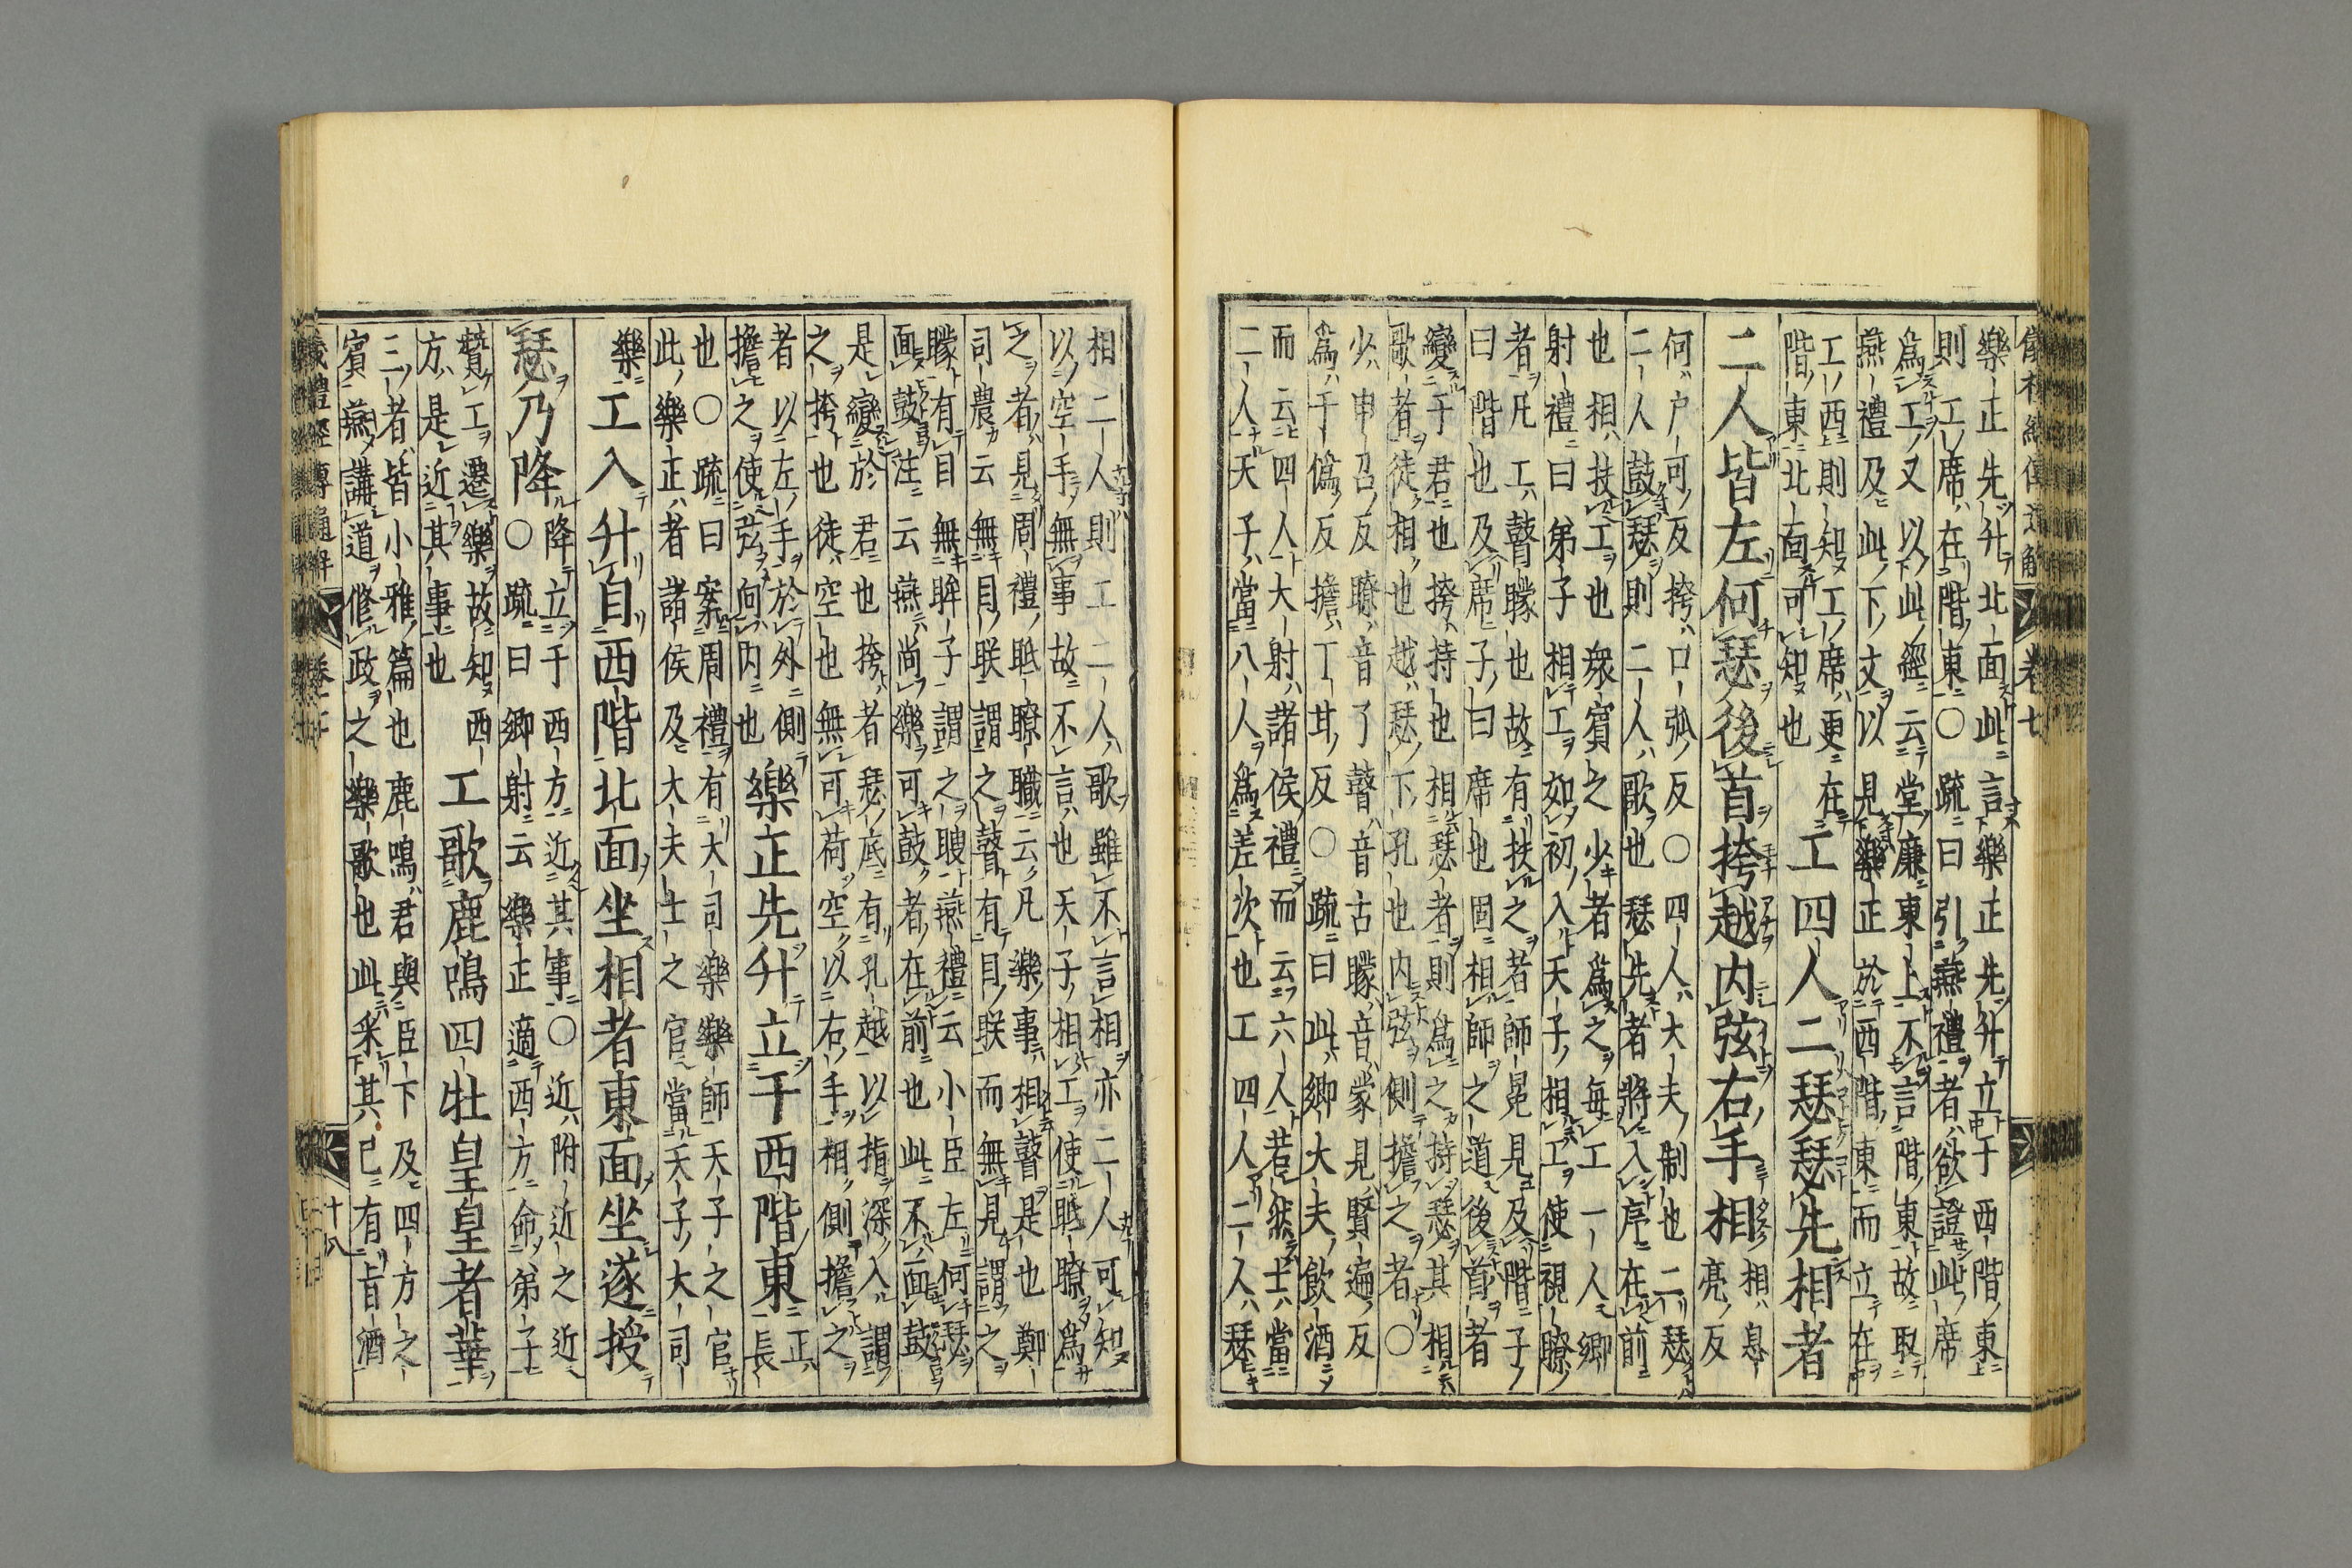 卷七
樂正先升北面此言樂正先升立于西階東
則工席在階東〇疏曰引燕禮者欲證此席
爲工又以此經云堂廉東上不言階東故取
燕禮及此下文以見樂正於西階東而立在
工西則知工席更在
階東北面可知也
工四人二瑟瑟先相者
二人皆左何瑟後首挎越内弦右手相
相息
亮反
何户可反挎口弧反〇四人大夫制也二瑟
二人鼓瑟則二人歌也瑟先者將入序在前
也相扶工也衆賓之少者爲之每工一人卿
射禮曰弟子相工如初入天子相工使視瞭
者凡工瞽矇也故有扶之者師冕見及階子
曰階也及席子曰席也固相師之道後首者
變于君也挎持也相瑟者則爲之持瑟其相
歌者徒相也越瑟下孔也内弦側擔之者〇
少申召反瞭音了瞽音古矇音蒙見賢遍反
爲于僞反擔丁甘反〇疏曰此卿大夫飲酒
而云四人大射諸侯禮而云六人若然士當
二人天子當八人爲差次也工四人二人瑟
相二人則工二人歌雖不言相亦二人可知
以空手無事故不言也天子相工使眡瞭爲
之者見周禮眡瞭職云凡樂事相瞽是也鄭
司農云無目眹謂之瞽有目眹而無見謂之
矇有目無眸子謂之瞍燕禮云小臣左何瑟
面鼓注云燕尚樂可鼓者在前也此不面鼓
是變於君也挎者瑟底有孔越以指深入謂
之挎也徒空也無可荷空以右手相側擔之
者以左手於外側
擔之使弦向内也
樂正先升立于西階東
正
長
也〇疏曰案周禮有大司樂樂師天子之官
此樂正者諸侯及大夫士之官當天子大司
樂
工入升自西階北面坐相者東面坐遂授
瑟乃降
降立于西方近其事〇近附近之近
〇疏曰卿射云樂正適西方命弟子
贊工遷樂故知西
方是近其事也
工歌鹿鳴四牡皇皇者華
三者皆小雅篇也鹿鳴君與臣下及四方之
賓燕講道修政之樂歌也此采其已有旨酒
儀禮經傳通解 卷七 十八